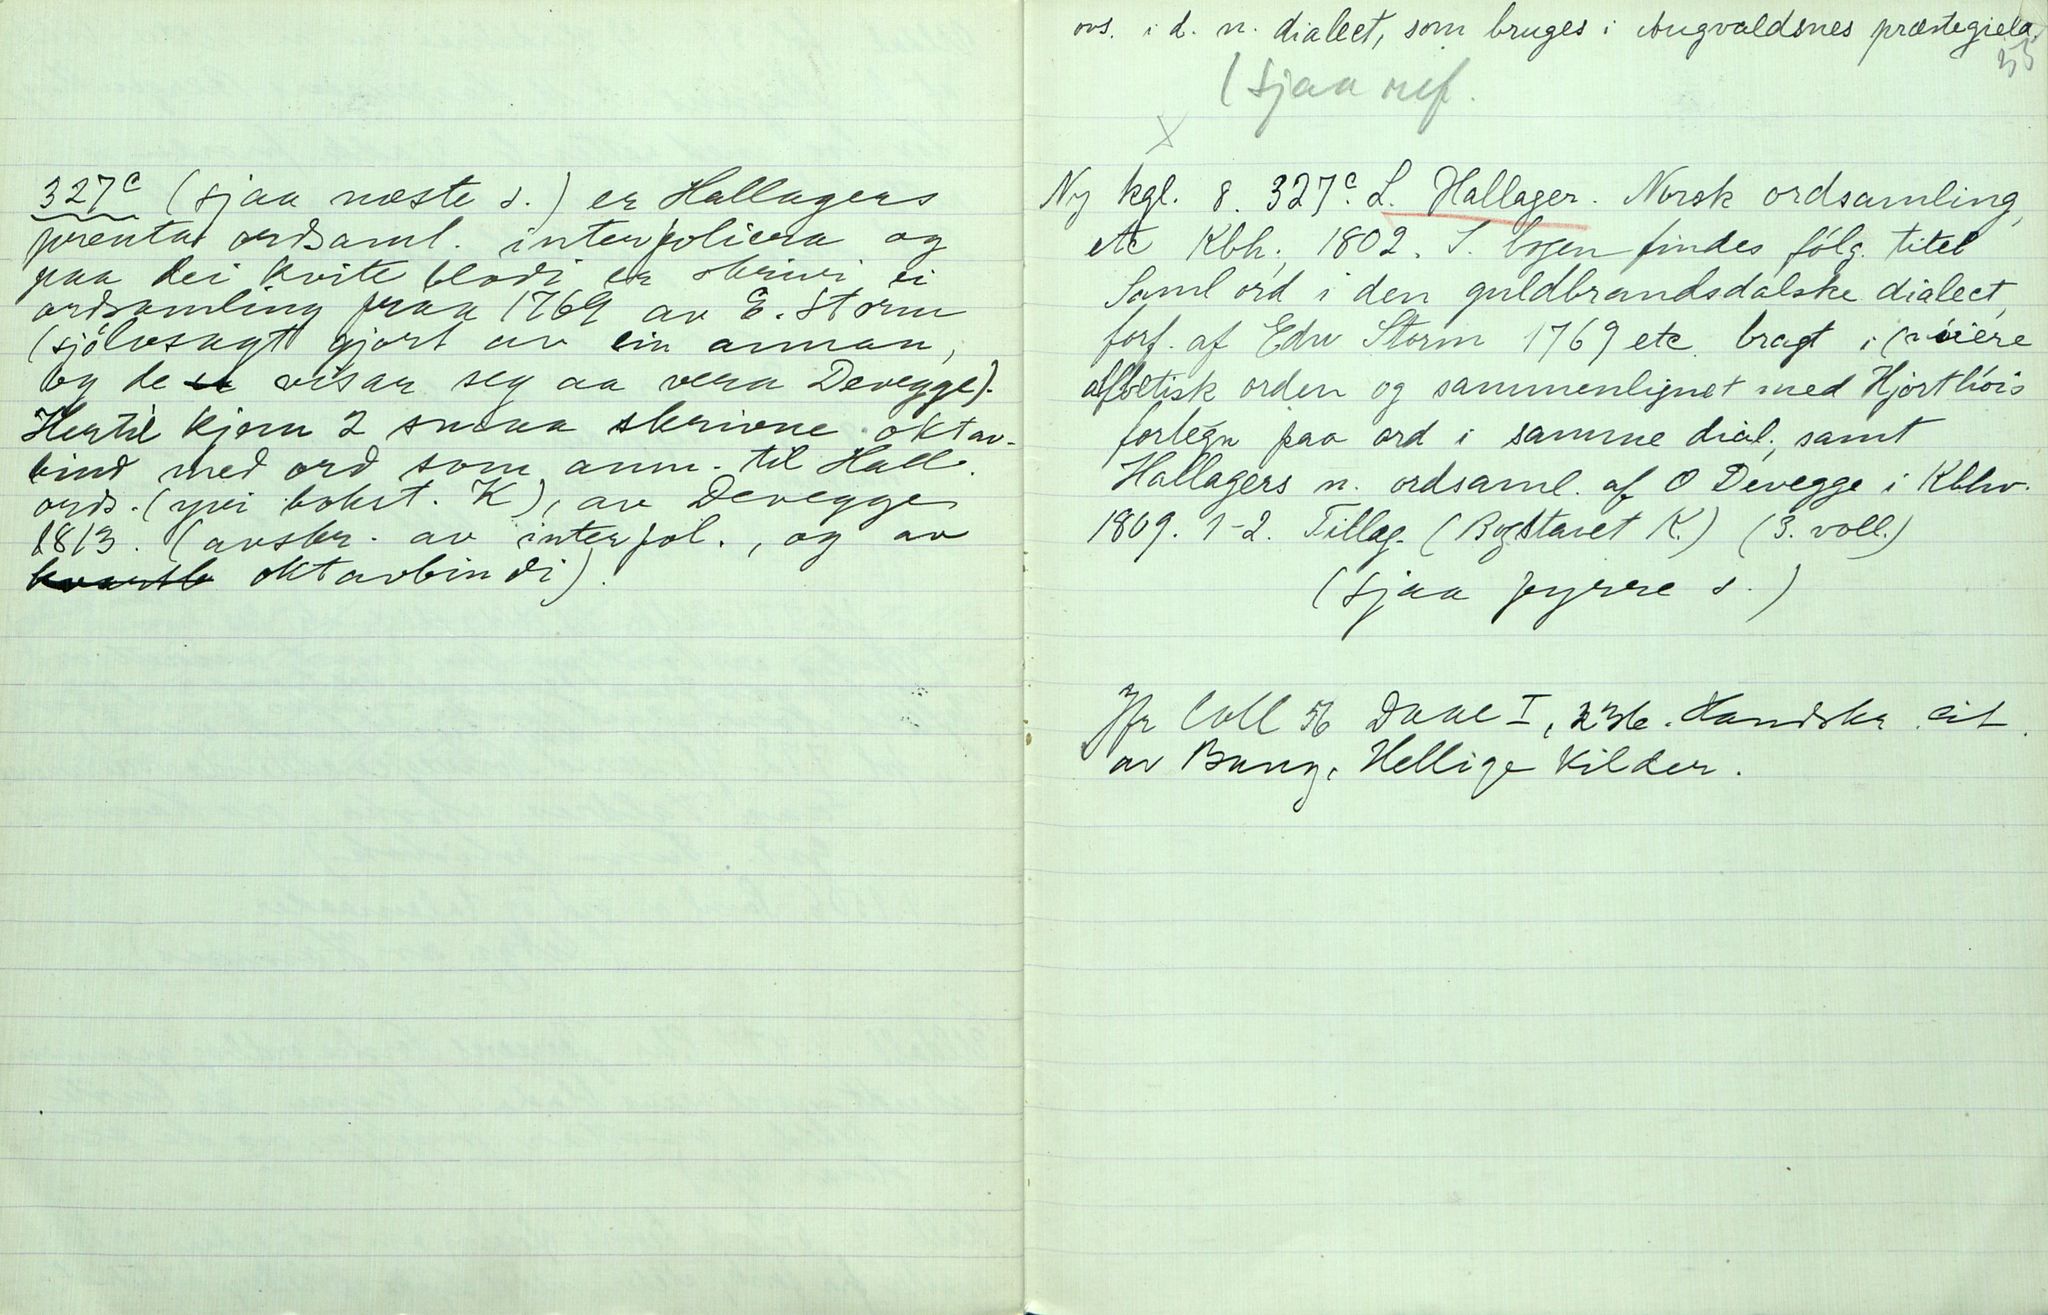 327c (sjaa næste s.) er Hallagers
prenta ordsaml. interpoliera og
paa dei kvite bladi er skrivi ei
ordsamling fraa 1769 av E. Storm
(sjølvsagt gjort av ein annan,
og de visar seg aa vera Devegge).
Hertil kjem 2 smaa skrivne oktav-
bind med ord som anm. til Hall.
ords. (yvi bokst. K), av Devegge
1813. (avskr. av interpol., og av
oktavbindi).
ovs. i d. n. dialect, som bruges i Augvaldsnes præstegield.
(sjaa
x
Ny kgl. 8. 327c. L. Hallager. Norsk ordsamling,
etc Kbh. 1802. I bogen findes følg. titel
Saml ord i den guldbrandsdalske dialect,
forf. af Edv Storm 1769 etc bragt i (nøiere
alfbetisk orden og sammenlignet med Hjorthøis
fortegn paa ord i samme dial., samt
Hallagers n. ordsaml. af O Devegge i Kbhv.
1809. 1-2. Tillæg. (Bogstavet K.) (3. voll.)
(sjaa fyrre s.)
Jfr Coll 56 Daae I, 236. Handskr. cit.
av Bang, Hellige Kilder.